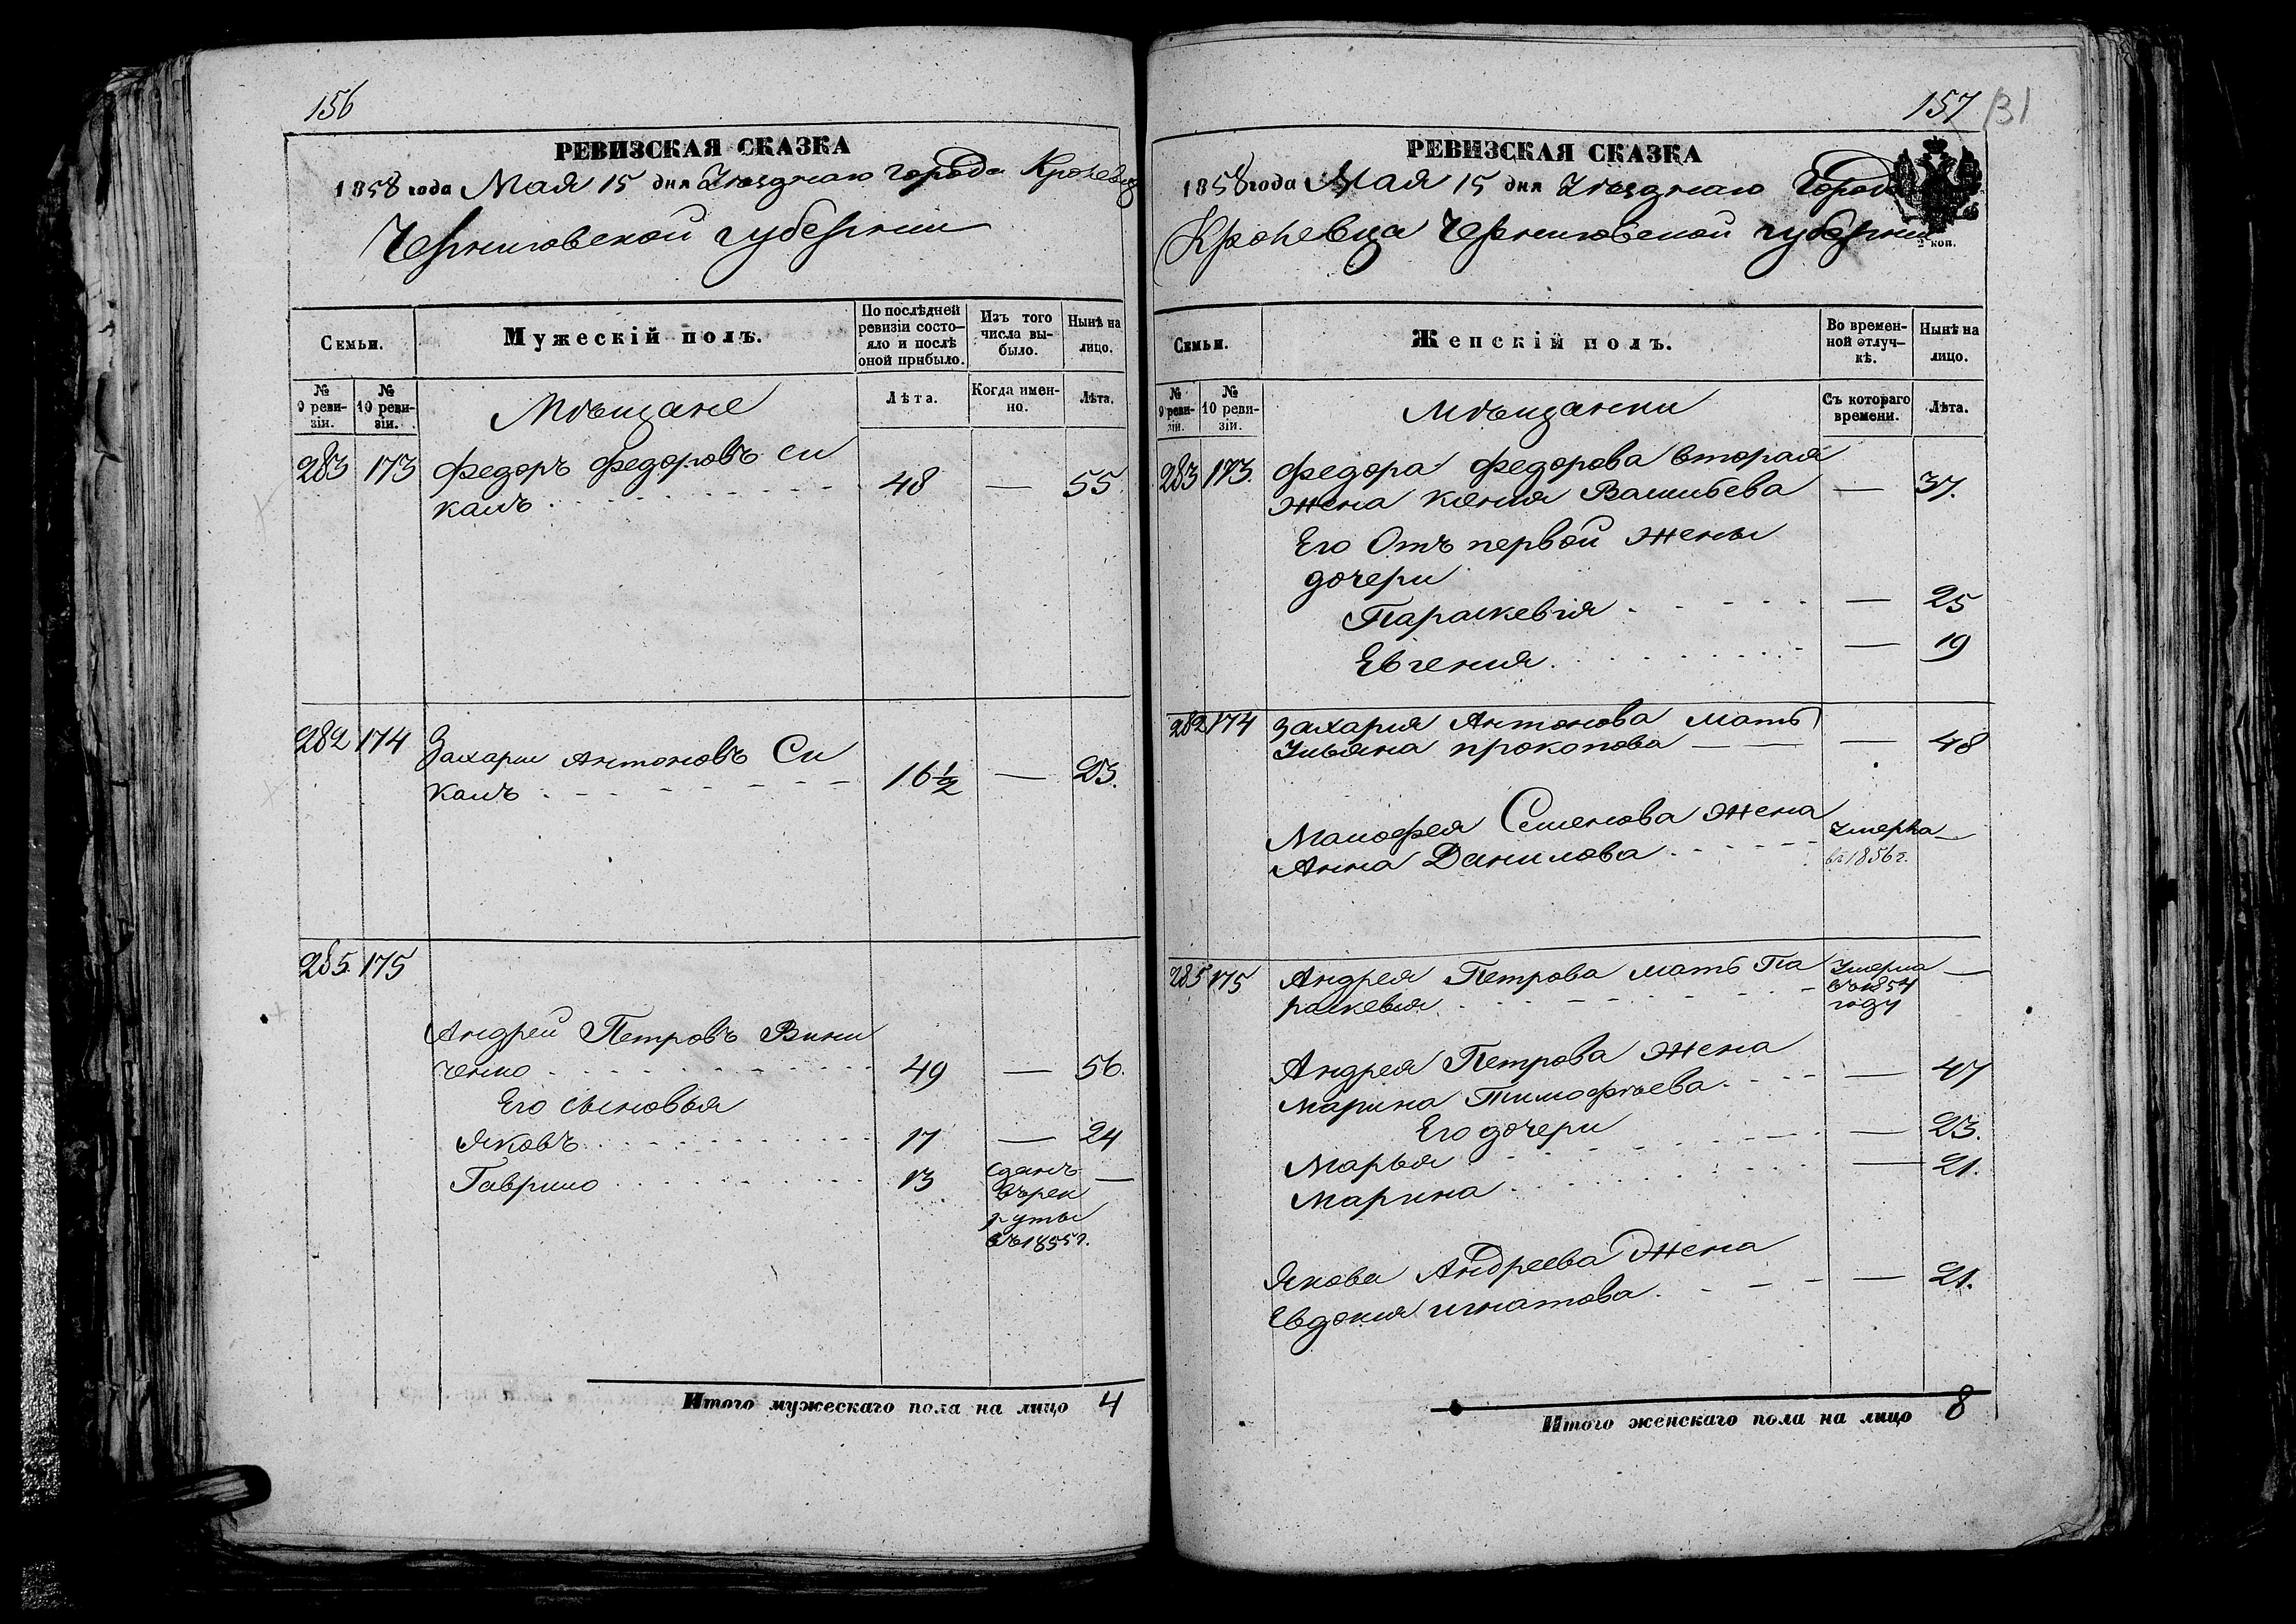 156
РЕВИЗСКАЯ СКАЗКА
1858 года Мая 15 дня Уѣзднаго города Кролевца
Черниговской губернии
Семьи.
Мужескій полъ.
По послѣдней ревизіи состо-
яло и послѣ
оной прибыло.
Изъ того
числа вы-
было.
Нынѣ на
лицо.
№
9 реви-
зіи.
№
10 реви-
зіи.
Мѣщане
Лѣта.
Когда имен-
но.
Лѣта.
283 173 Федоръ Федоровъ Си
калъ 48 — 55.
282 174 Захарии Антоновъ Си
калъ 16 1/2 — 23.
285. 175
Андрей Петровъ Вини
ченко 49 — 56.
Его сыновья
Яковъ 17 — 24
Гаврило 13 сданъ —
въ рек
руты
въ 1855 г.
Итого мужескаго пола на лицо 4
157 131
РЕВИЗСКАЯ СКАЗКА
1858 года Мая 15 дня Уѣзднаго Города
Кролевца Черниговской губернии
2 коп.
Семьи.
Женскій полъ.
Во времен-
ной отлуч-
кѣ.
Нынѣ на
лицо.
№
9 реви-
зіи.
№
10 реви-
зіи.
Мѣщанки
Съ котораго
времени.
Лѣта.
283 173. Федора Федорова вторая
жена Ксения Васильева — 37.
Его Отъ первой жены
дочери
Параскевия — 25
Евгения — 19
282 174 Захария Антонова мать
Ульяна Прокопова — 48
Семенова жена Умерла —
Анна Данилова въ 1856 г.
285 175 Андрея Петрова мать Па Умерла —
раскевия въ 1854
году
Андрея Петрова жена
Марина Тимофѣева — 47
Его дочери
Марья — 23.
Марина — 21.
Якова Андреева жена
Евдокия Игнатова — 21.
Итого женскаго пола на лицо 8